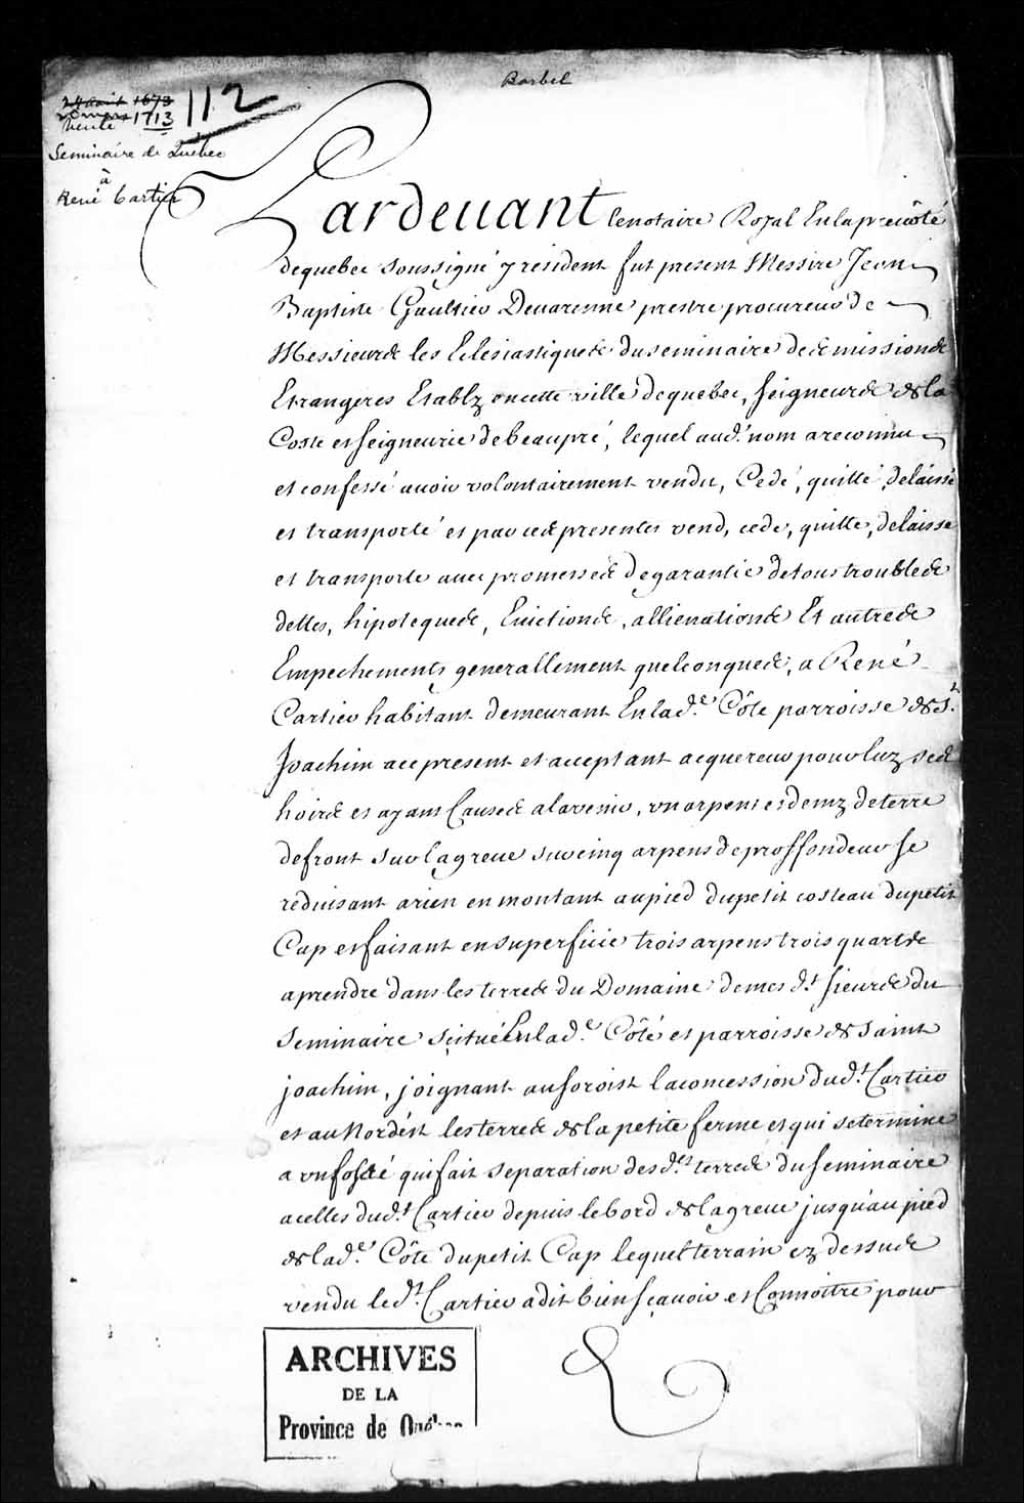 Barbel
24 aoust 1673
Vente 1713
112
Seminaire de Quebec
à
René Cartier
Pardeuant lenotaire Royal En la preuôté
dequebec soussigné y resident fut present Messire Jean
Baptiste Gaultier Deuarenne prestre procureur de
Messieurs les Eclesiastiques du seminaire des missions
Etrangeres Establÿ encette ville dequebec, seigneurs de la
Coste et seigneurie debeaupré, lequel aud.t nom areconnu
et confessé auoir volontairement vendu, Cedé, quitté, delaissé
et transporté et par ces presentes vend, cede, quitte, delaisse
et transporte auec promesses degarantie detous troubles
dettes, hipoteques, Euictions, allienations Et autres
Empechements generallement quelconques, a René
Cartier habitant demeurant En lad.e Côte parroisse de S.t
Joachim ace present et acceptant acquereur pour luy ses
hoirs et ayans Causes alavenir, vn arpent et demy deterre
defront sur lagreue sur cinq arpens deproffondeur se
réduisant arien en montant aupied dupetit costeau dupetit
Cap et faisant en superficie trois arpens trois quarts
aprendre dans les terres du Domaine demes d.ts sieurs du
Seminaire scituée En lad.e Côté et parroisse de saint
joachim, joignant au soroist laconcession dud.t Cartier
et au Nordest les terres de la petite ferme et qui setermine
a vn fossé qui fait separation des d.tes terres du seminaire
acelles dud.t Cartier depuis lebord de lagreue jusqu'au pied
de lad.e Côte dupetit Cap lequel terrain cy dessus
vendu led.t Cartier adit bien sçauoir et Connoitre pour
ARCHIVES
DE LA
Province de Québec